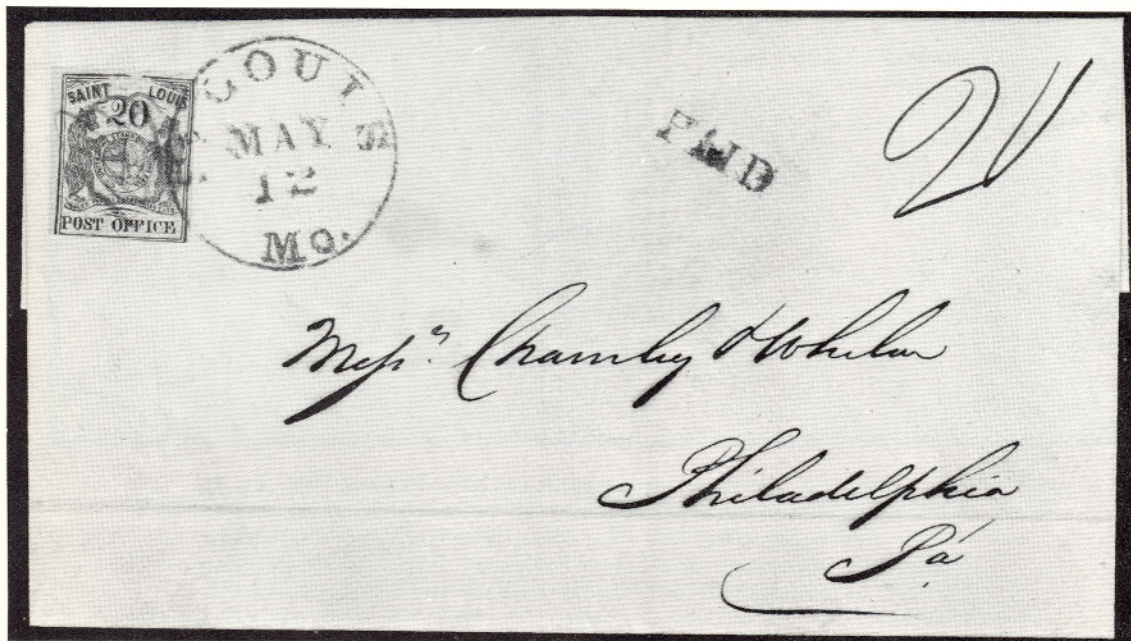 SAINT LOUIS
20
POST OFFICE
ST. LOUIS
MAY
12
Mo.
PAID
20
Messrs Charnley & Whelen
Philadelphia
Pa